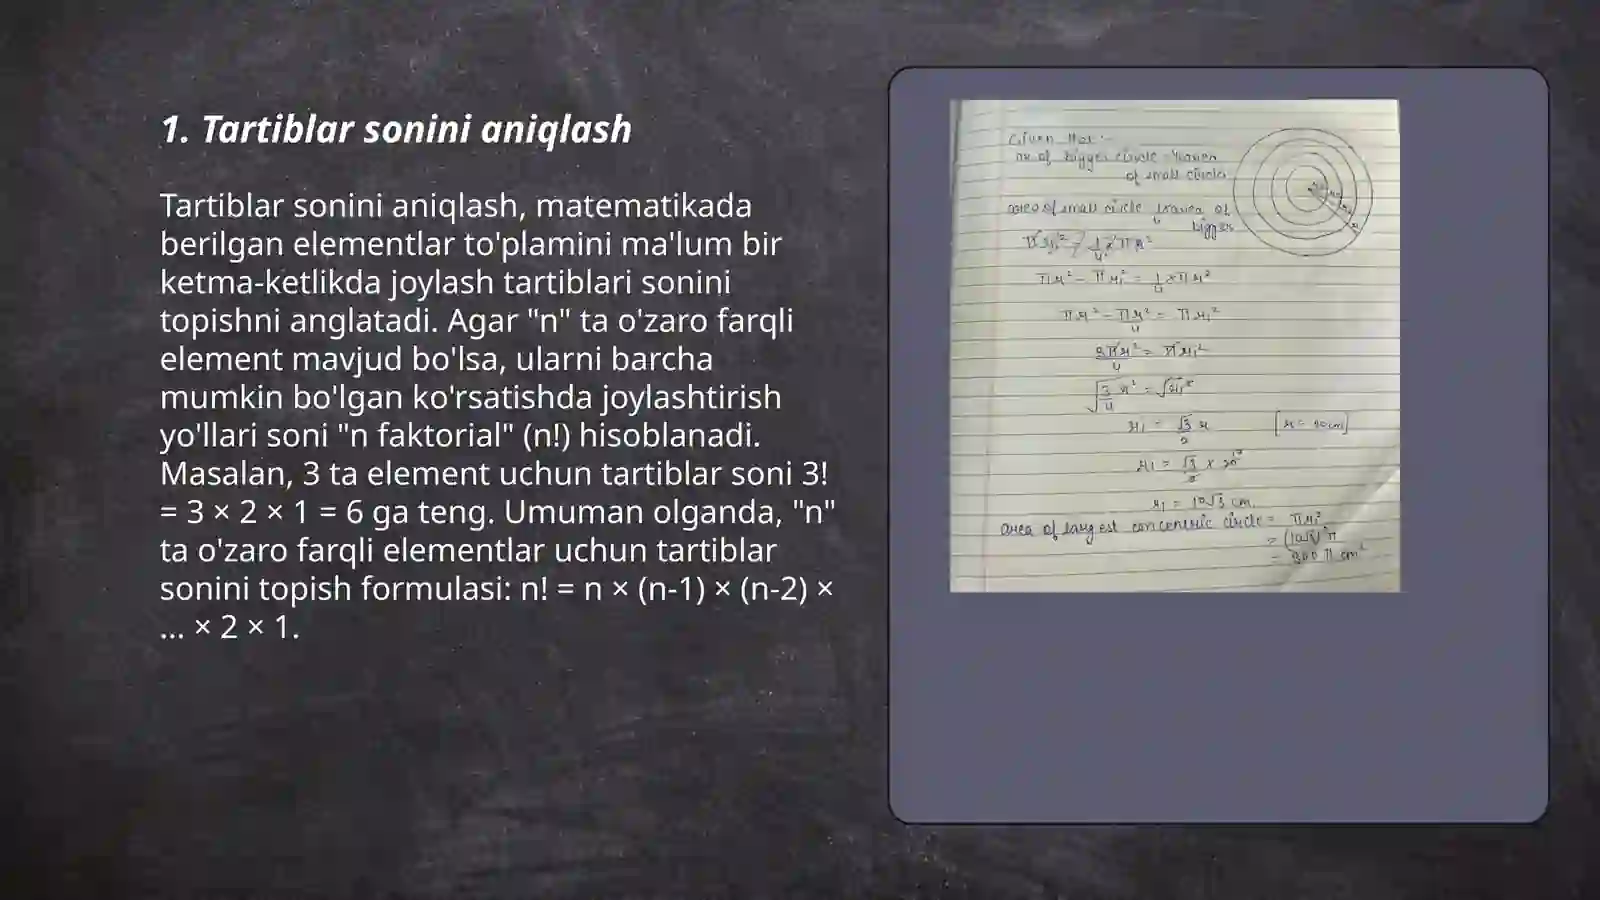 1. Tartiblar sonini aniqlash
Tartiblar sonini aniqlash, matematikada
berilgan elementlar to'plamini ma'lum bir
ketma-ketlikda joylash tartiblari sonini
topishni anglatadi. Agar "n" ta o'zaro farqli
element mavjud bo'lsa, ularni barcha
mumkin bo'lgan ko'rsatishda joylashtirish
yo'llari soni "n faktorial" (n!) hisoblanadi.
Masalan, 3 ta element uchun tartiblar soni 3!
= 3 × 2 × 1 = 6 ga teng. Umuman olganda, "n"
ta o'zaro farqli elementlar uchun tartiblar
sonini topish formulasi: n! = n × (n-1) × (n-2) ×
... × 2 × 1.
Given that :-
of bigger circle
of small circle
area of small circle of
bigger
πr² - πr₁² = 1/4 × πr²
πr² - πr²/4 = πr₁²
3πr²/4 = πr₁²
r₁ = √3/2 r [r = 20cm]
r₁ = √3/2 × 20
r₁ = 10√3 cm.
area of largest concentric circle = πr₁²
= (10√3)²π
= 300 π cm²